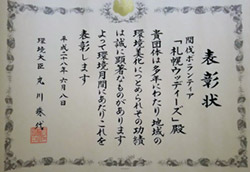 表彰状
間伐ボランティア
「札幌ウッディーズ」殿
貴団体は多年にわたり地域の
環境美化につとめられその功績
は誠に顕著なものがあります
よって環境月間にあたりこれを
表彰します
平成二十八年六月八日
環境大臣 丸川珠代